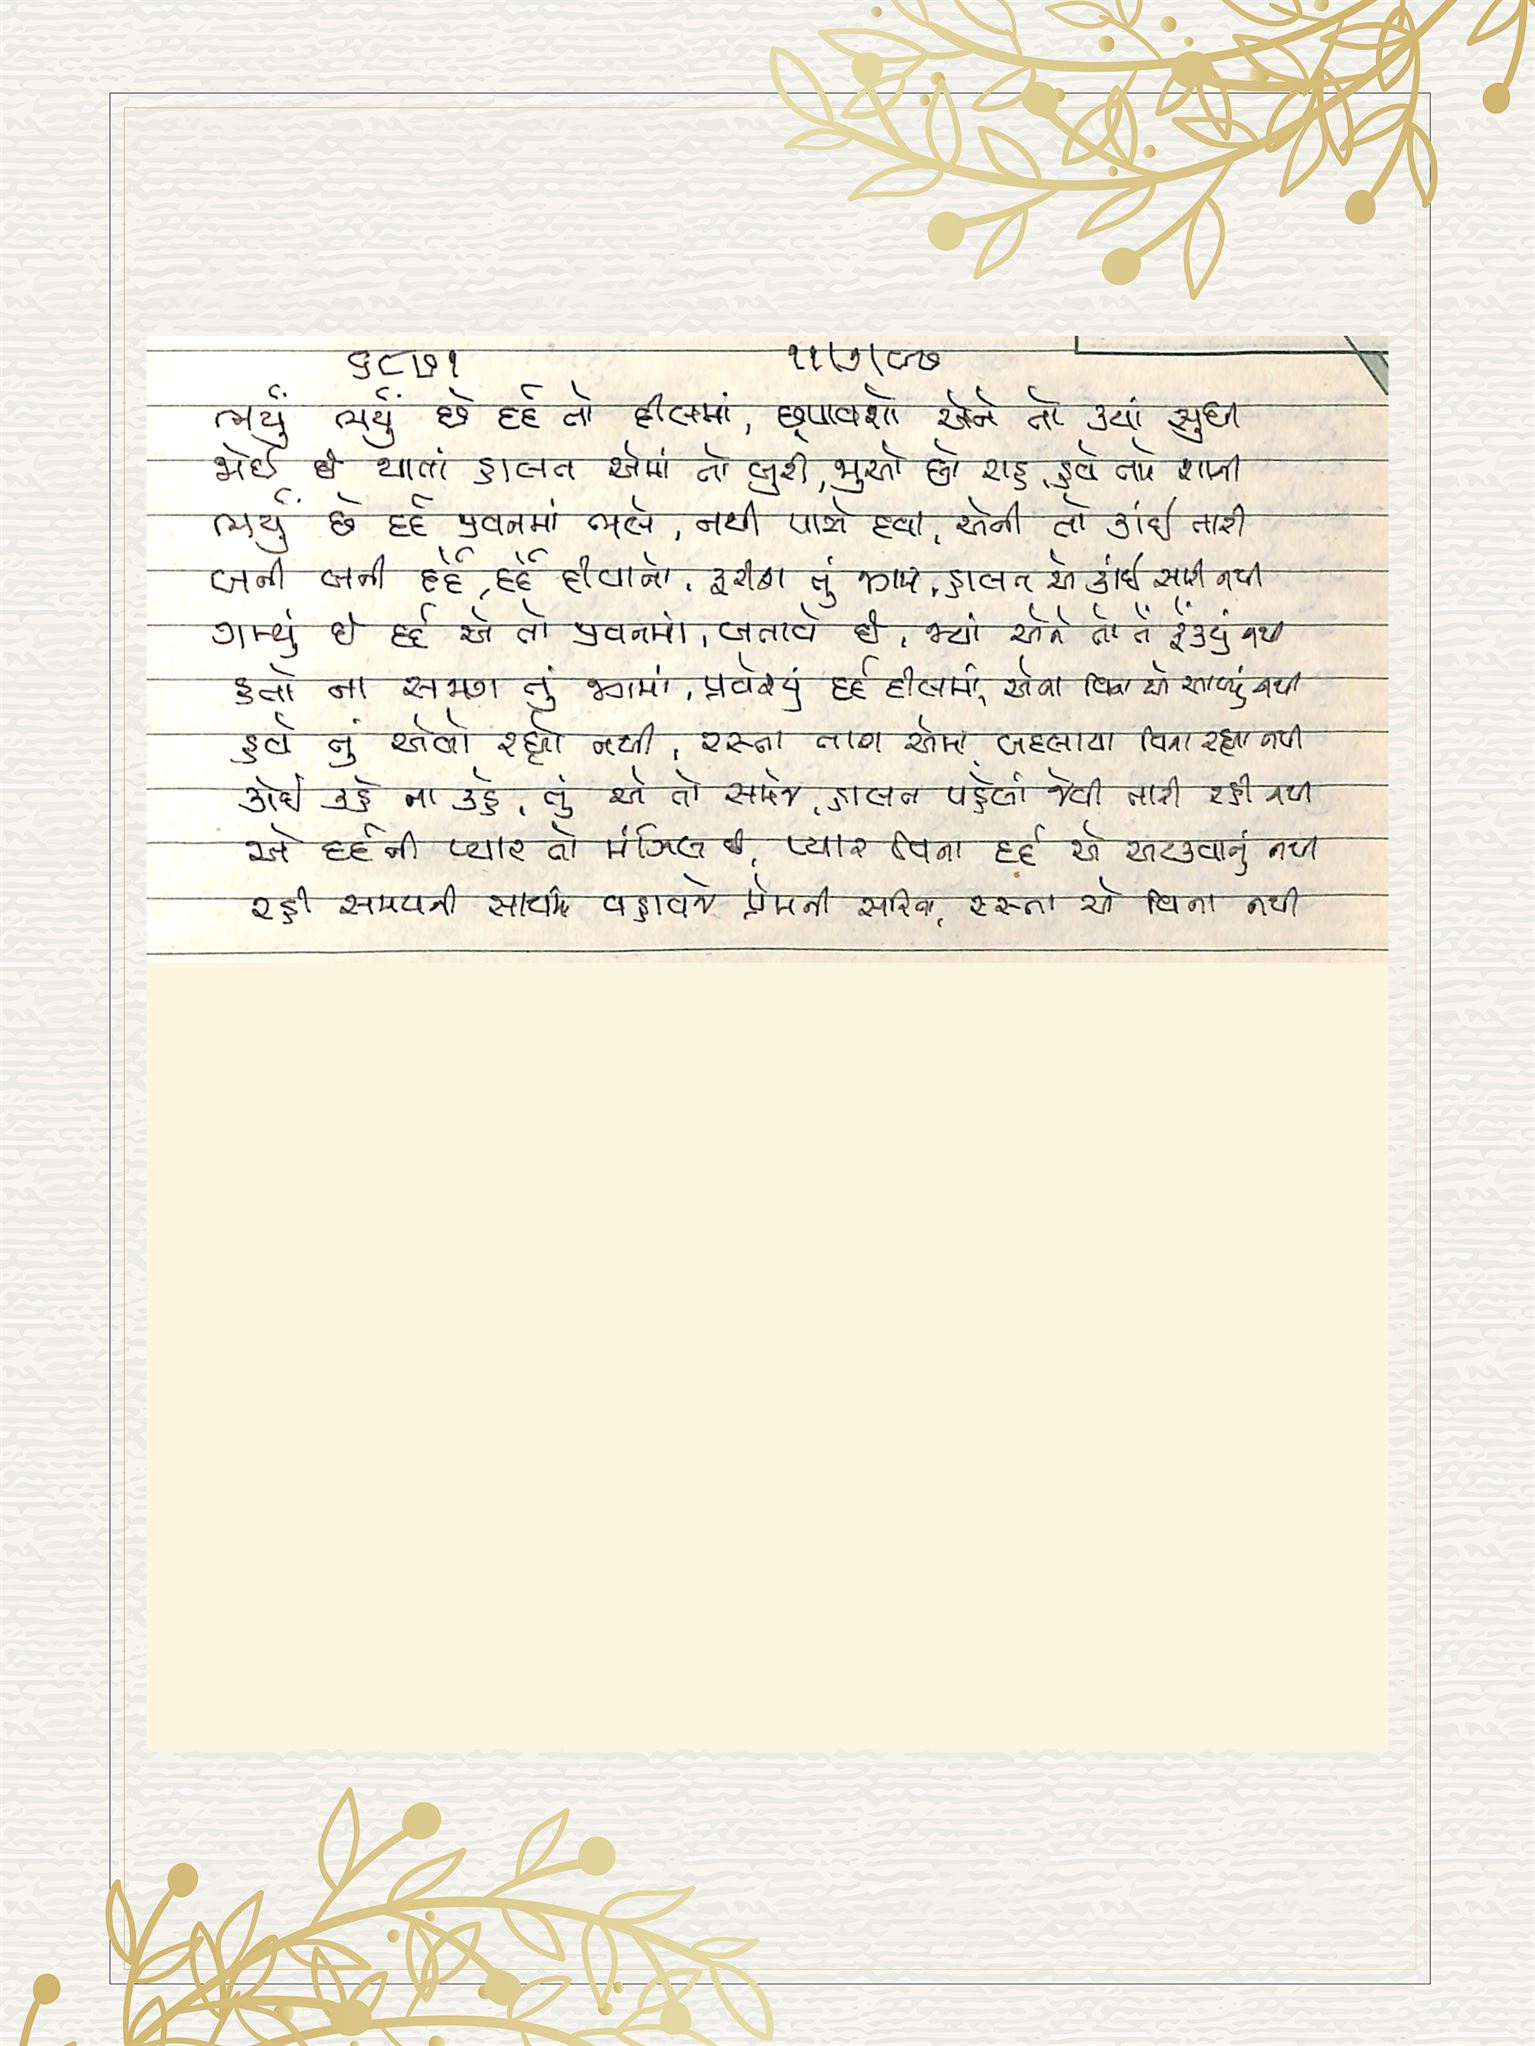 ૬૮૭૧ ૧૧/૭/૯૭
ભર્યું ભર્યું છે દર્દ તો દીલમાં, છૂપાવશો એને તો ક્યાં સુધી
જોઈ છે થાતાં હાલત એમાં તો બુરી, જુઓ છો રાહ, હવે તમે શાની
ભર્યું છે દર્દ જીવનમાં ભલે, નથી પાસે દવા, એની તો કાંઈ તારી
બની બની દર્દે, દર્દે દીવાનો, ફરીશ તું જગમાં, હાલત એ કાંઈ સારી નથી
ગમ્યું છે દર્દ એ તો જીવનમાં, બતાવે છે, જ્યાં એને તો તેં ફેંક્યું નથી
હતો ના સમજી તું જગમાં, પ્રવેશ્યું દર્દ દીલમાં, એના વિના એ આવ્યું નથી
હવે તું એવો રહ્યો નથી, રસ્તા તારા એમાં, બદલાયા વિના રહ્યા નથી
કોઈ કહે ના કહે, તું એ તો સમજે, હાલત પહેલાં જેવી તારી રહી નથી
એ દર્દની પ્યાર તો મંઝિલ છે, પ્યાર વિના દર્દ એ અટકવાનું નથી
રહી સમયની સાથે વહાવજે પ્રેમની સરિતા, રસ્તા એ વિના નથી